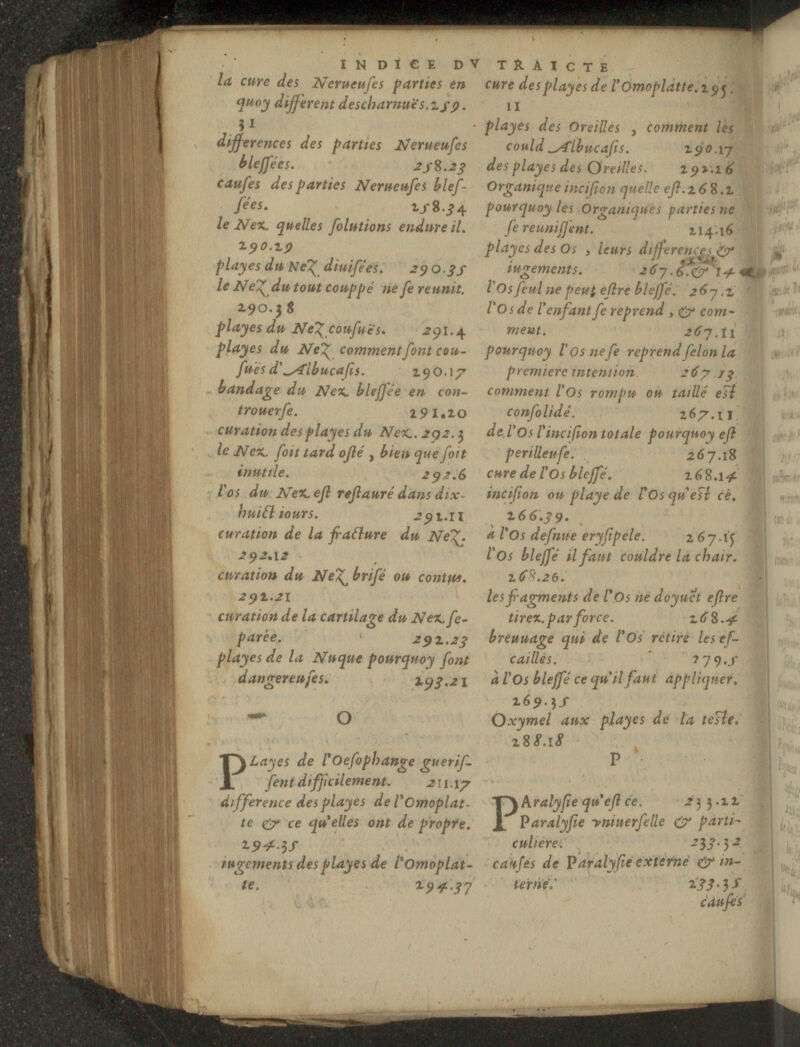 INDICE DV TRAICTE
la cure des Nerueuſes parties en
quoy different deſcharnuës. 259.
31
differences des parties Nerueuſes
bleſſées. 258.23
cauſes des parties Nerueuſes bleſ-
ſées. 258.34
le Nez, quelles ſolutions endure il.
290.29
playes du Nez diuiſées. 290.35
le Nez du tout couppé ne ſe reunit.
290.38
playes du Nez couſuës. 291.4
playes du Nez comment ſont cou-
ſuës d'Albucaſis. 290.17
bandage du Nez bleſſée en con-
trouerſe. 291.20
curation des playes du Nez. 292.3
le Nez ſoit tard oſté, bien que ſoit
inutile. 292.6
l'os du Nez eſt reſtauré dans dix-
huict iours. 292.11
curation de la fracture du Nez.
292.12
curation du Nez briſé ou contus.
292.21
curation de la cartilage du Nez ſe-
parée. 292.23
playes de la Nuque pourquoy ſont
dangereuſes. 293.21
O
PLayes de l'Oeſophange gueriſ-
ſent difficilement. 211.17
difference des playes de l'Omoplat-
te & ce qu'elles ont de propre.
294.35
iugements des playes de l'Omoplat-
te. 294.37
cure des playes de l'Omoplatte. 295.
11
playes des Oreilles, comment les
could Albucaſis. 290.17
des playes des Oreilles. 292.26
Organique inciſion quelle eſt. 268.2
pourquoy les Organiques parties ne
ſe reuniſſent. 214.16
playes des Os, leurs differences &
iugements. 267.6. & 14
l'Os ſeul ne peut eſtre bleſſé. 267.2
l'Os de l'enfant ſe reprend, & com-
ment. 267.11
pourquoy l'os ne ſe reprend ſelon la
premiere intention. 267 13
comment l'Os rompu ou taillé eſt
conſolidé. 267.11
de l'Os l'inciſion totale pourquoy eſt
perilleuſe. 267.18
cure de l'Os bleſſé. 268.14
inciſion ou playe de l'Os qu'eſt ce.
266.39.
à l'Os deſnue eryſipele. 267.15
l'Os bleſſé il faut couldre la chair.
268.26.
les fragments de l'Os ne doyuēt eſtre
tirez par force. 268.4
breuuage qui de l'Os retire les eſ-
cailles. 279.5
à l'Os bleſſé ce qu'il faut appliquer.
269.35
Oxymel aux playes de la teſte.
288.18
P
PAralyſie qu'eſt ce. 233.22
Paralyſie vniuerſelle & parti-
culiere. 233.32
cauſes de Paralyſie externe & in-
terne. 233.35
cauſes